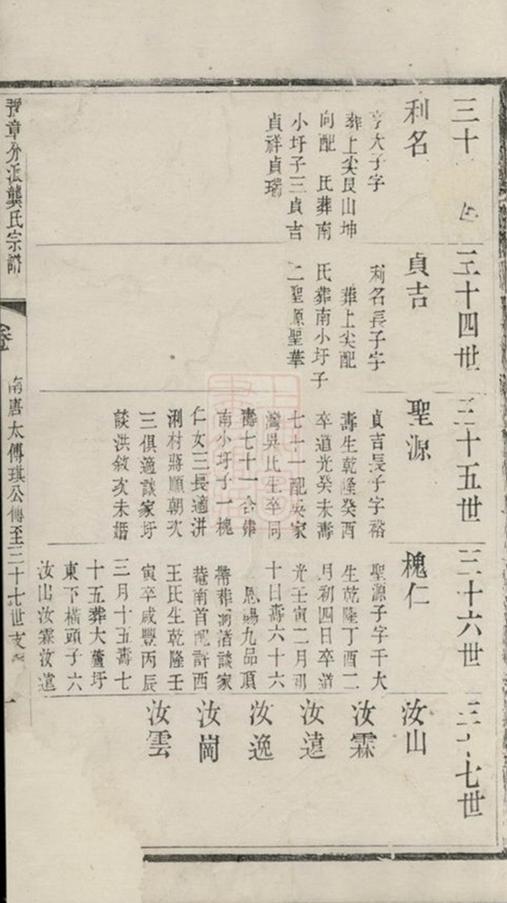 三十 世
利名
亨大子字
葬上尖艮山坤
向配 氏葬南
小圩子三貞吉
貞祥貞瑞
三十四世
貞吉
利名長子字
葬上尖配
氏葬南小圩子
二聖源聖華
三十五世
聖源
貞吉長子字裕
壽生乾隆癸酉
卒道光癸未壽
七十一配吳家
灣吳氏生卒同
壽七十一合葬
南小圩子一槐
仁女三長適洴
浰村蔣順朝次
三俱適談家圩
談洪敘次未婚
三十六世
槐仁
聖源子字干大
生乾隆丁酉二
月初四日卒道
光壬寅二月初
十日壽六十六
恩賜九品頂
帶葬 渚談家
菴南首配許西
王氏生乾隆壬
寅卒咸豐丙辰
三月十五壽七
十五葬大蘆圩
東下橫頭子六
汝山汝霖汝遠
三十七世
汝山
汝霖
汝遠
汝逸
汝崗
汝雲
豫章分派龔氏宗譜
卷
南唐太傅琪公傳至三十七世支
一